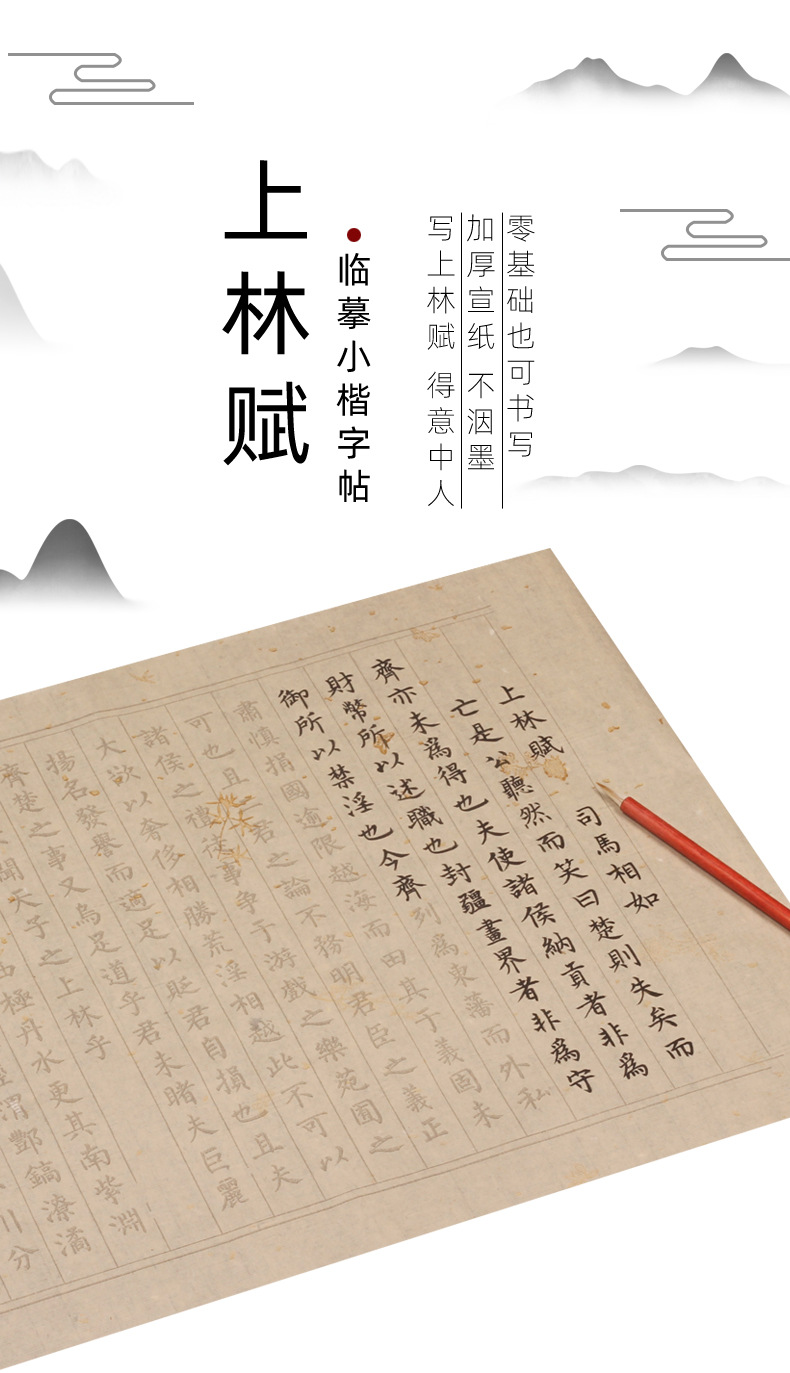 上林赋
临摹小楷字帖
零基础也可书写
加厚宣纸 不洇墨
写上林赋 得意中人
上林賦 司馬相如
亡是公聽然而笑曰楚則失矣而
齊亦未爲得也夫使諸侯納貢者非爲
財幣所以述職也封疆畫界者非爲守
御所以禁淫也今齊列爲東藩而外私
肅慎捐國逾限越海而田其于義固未
可也且二君之論不務明君臣之義正
諸侯之禮徒事争于游戲之樂苑囿之
大欲以奢侈相勝荒淫相越此不可以
揚名發譽而適足以貶君自損也且夫
齊楚之事又烏足道乎君未睹夫巨麗
聞天子之上林乎
西極丹水更其南紫淵
渭酆鎬潦潏
川分